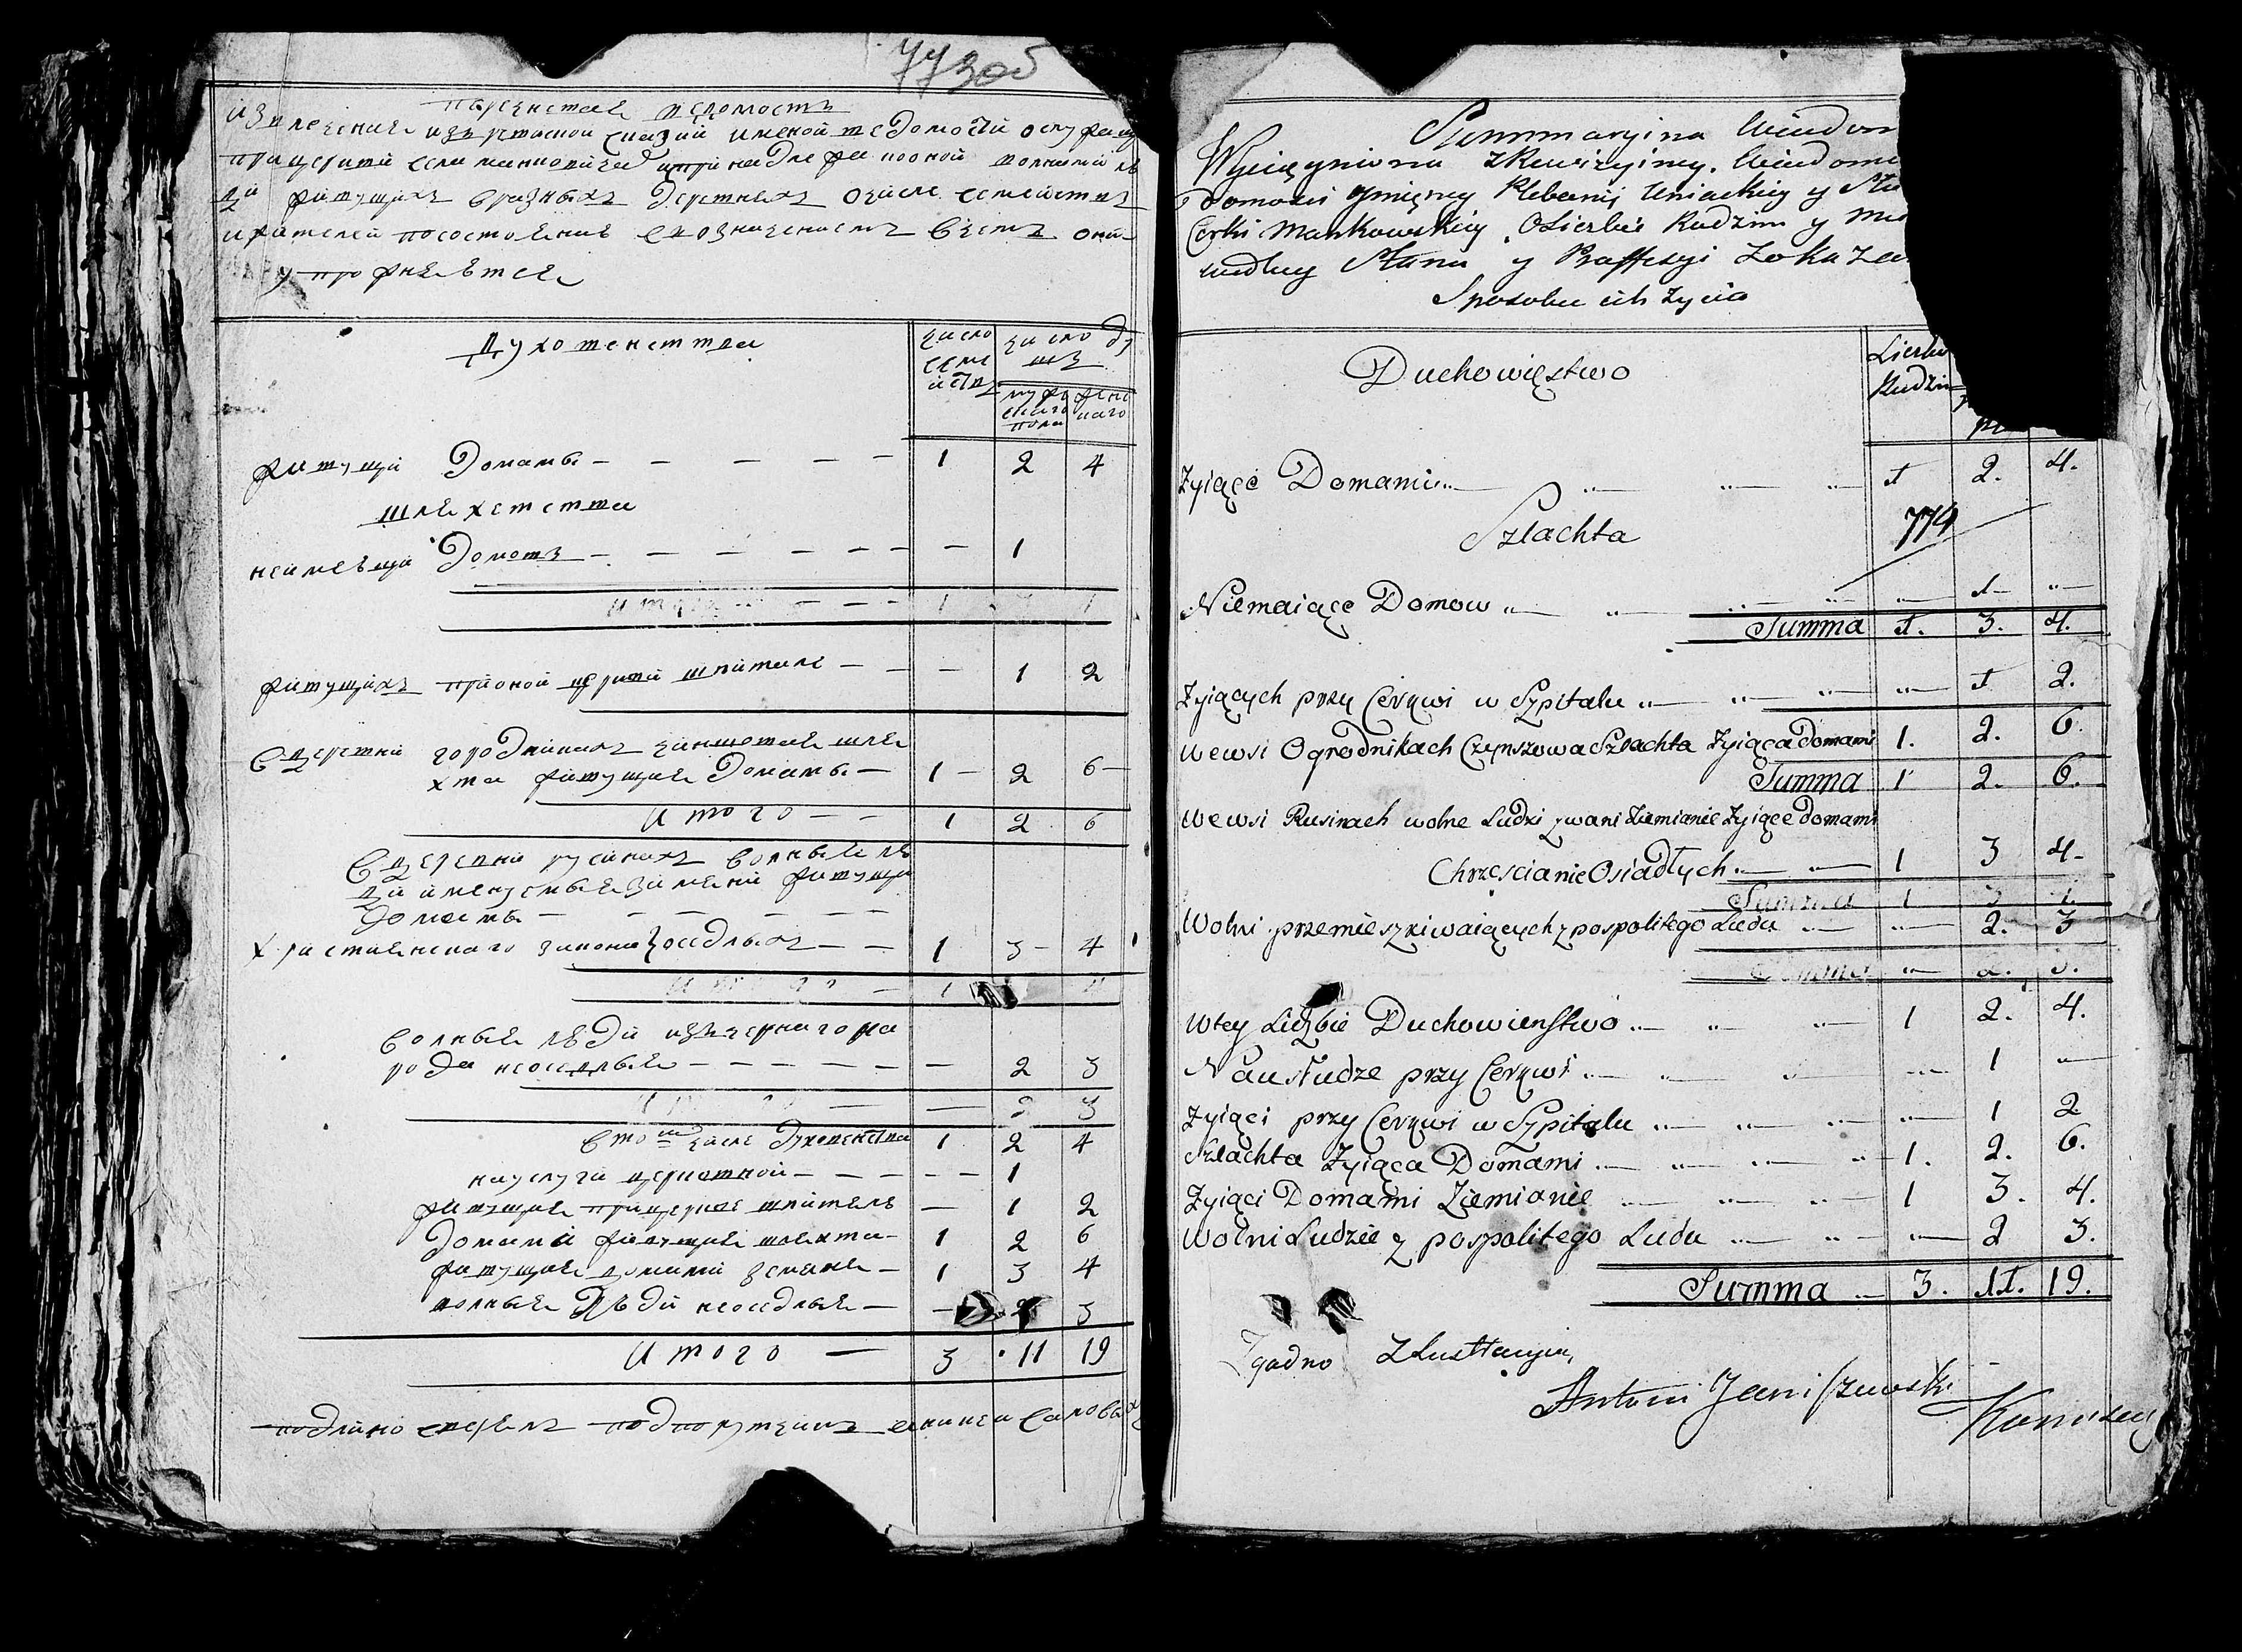 773 об
перечневая ведомость
извлечение изъ
при церкви
ви живущихъ в разныхъ деревняхъ о числе семействъ
и жителей по состоянию съ означениемъ в чемъ они
упрожняется
Духовенства
число семействъ
число душъ
мужескаго пола
женскаго
живущи Домами — — — — — 1 2 4
шляхетства
неимеющи Домовъ — — — — — — — 1
итого — — — 1 3 4
живущихъ при оной церкви шпитале — — — 1 2
В деревни городникахъ чиншовая шля
хта живущие Домами — 1 — 2 6 —
Итого — — 1 2 6
В деревни русинахъ вольные лю
ди именуемые земяни живущи
Домами — — — — — —
Христианского закона оседлыхъ — — 1 3 — 4
итого — 1 4
вольные люди изъ черного на
рода неоседлые — — — — — — 2 3
итого — — 2 3
В томъ числе Духовенства 1 2 4
на услуги церковной — — — — — 1
живущие при церкве шпитель — 1 2
Домами живущие шляхта — 1 2 6
живущие домами земяне — 1 3 4
вольные Люди неоседлые — — 2 3
Итого — 3 11 19
подлинно сверялъ
Summaryina Wiadom
Wyciągniona z Rewizyiney Wiadom
domości Plebanij Uniackiey y
Cerkwi Mankowskiey, O Liczbie Rodzin y
według Stanu y Proffesyi z okaza
Sposobu ich życia
Duchowięstwo
Liczba
Rodzin
Żyiące Domami — — — — 1 2. 4.
Szlachta
774
Niemaiące Domow — — — — — 1 —
Summa 1. 3. 4.
Żyiących przy Cerqwi w Szpitalu — — — — 1 2.
We wsi Ogrodnikach Czynszowa Szlachta Żyiąca domami 1. 2. 6.
Summa 1 2. 6.
We wsi Rusinach wolne Ludzi zwani Ziemianie Żyiące domami
Chrzescianie Osiadłych — — 1 3 4 —
Summa 1 3 4
Wolni przemieszkiwaiących z pospolitego Ludu — — 2. 3
Summa — 2. 3.
W tey Liczbie Duchowienstwo — — — 1 2. 4.
Na usłudze przy Cerqwi — — — — 1 —
Żyiąci przy Cerqwi w Szpitalu — — — — 1 2
Szlachta Żyiąca Domami — — — — 1. 2. 6.
Żyiąci Domami Ziemianie — — — 1 3. 4.
Wolni Ludzie z pospolitego Ludu — — — 2 3.
Summa — 3. 11. 19.
Zgodno z Lustracyą,
Antoni Janiszewski